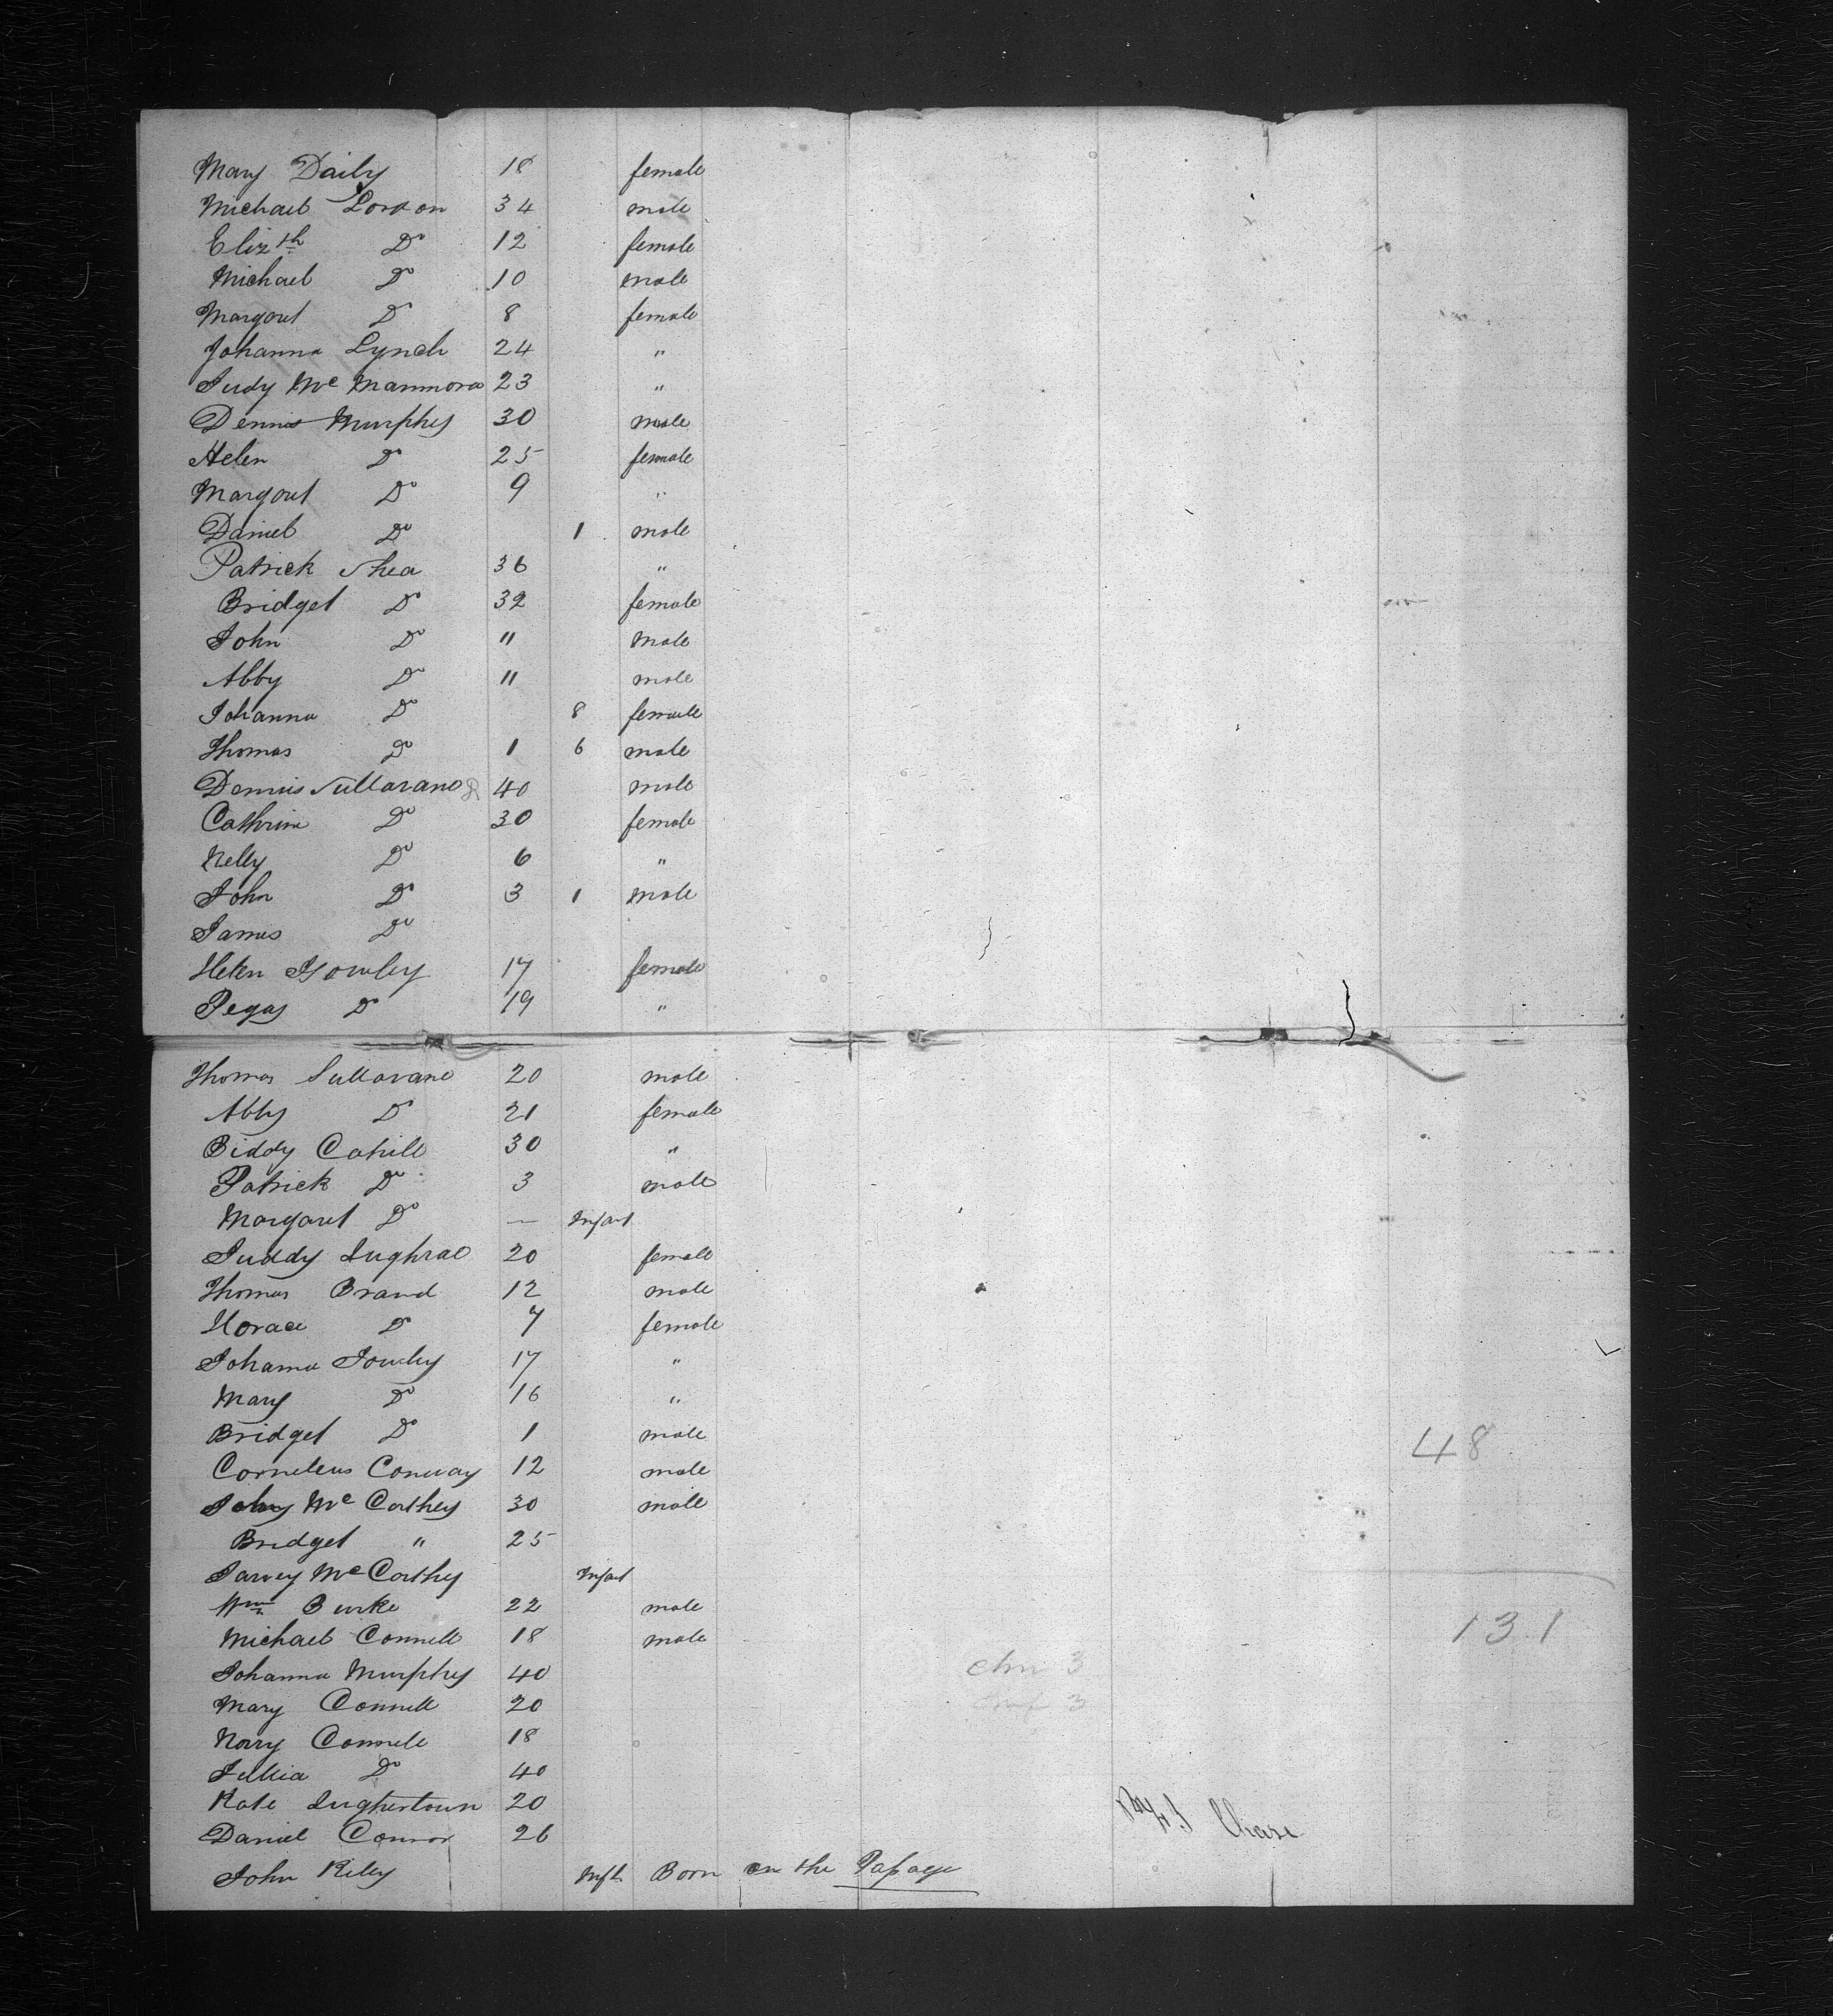 Mary Daily 18 female
Michael Lordon 34 male
Eliz th Do 12 female
Michael Do 10 male
Margout Do 8 female
Johanna Lynch 24 "
Judy Mc Mammora 23 "
Dennis Murphy 30 male
Helen Do 25 female
Margout Do 9 "
Daniel Do 1 male
Patrick Shea 36 "
Bridget Do 32 female
John Do 11 male
Abby Do 11 male
Johanna Do 8 female
Thomas Do 1 6 male
Dennis Sullavane 40 male
Cathrine Do 30 female
Nelly Do 6 "
John Do 3 1 male
James Do
Helen 17 female
Pegay Do 19 "
Thomas Sullavane 20 male
Abby Do 21 female
Biddy Cahill 30 "
Patrick Do 3 male
Margaret Do — Infant
Juddy Lughrae 20 female
Thomas Brand 12 male
Horace Do 7 female
Johanna 17 "
Mary Do 16 "
Bridget Do 1 male
Corneleus Conway 12 male
48
John Mc Carthey 30 male
Bridget " 25
Mc Carthy Infant
Wm Burke 22 male
Michael Connell 18 male
131
Johanna Murphy 40
chn 3
Mary Connell 20
3
Norry Connell 18
Do 40
Kate Lughertown 20
Daniel Connor 26
Chase
John Riley Inft Born on the Passage